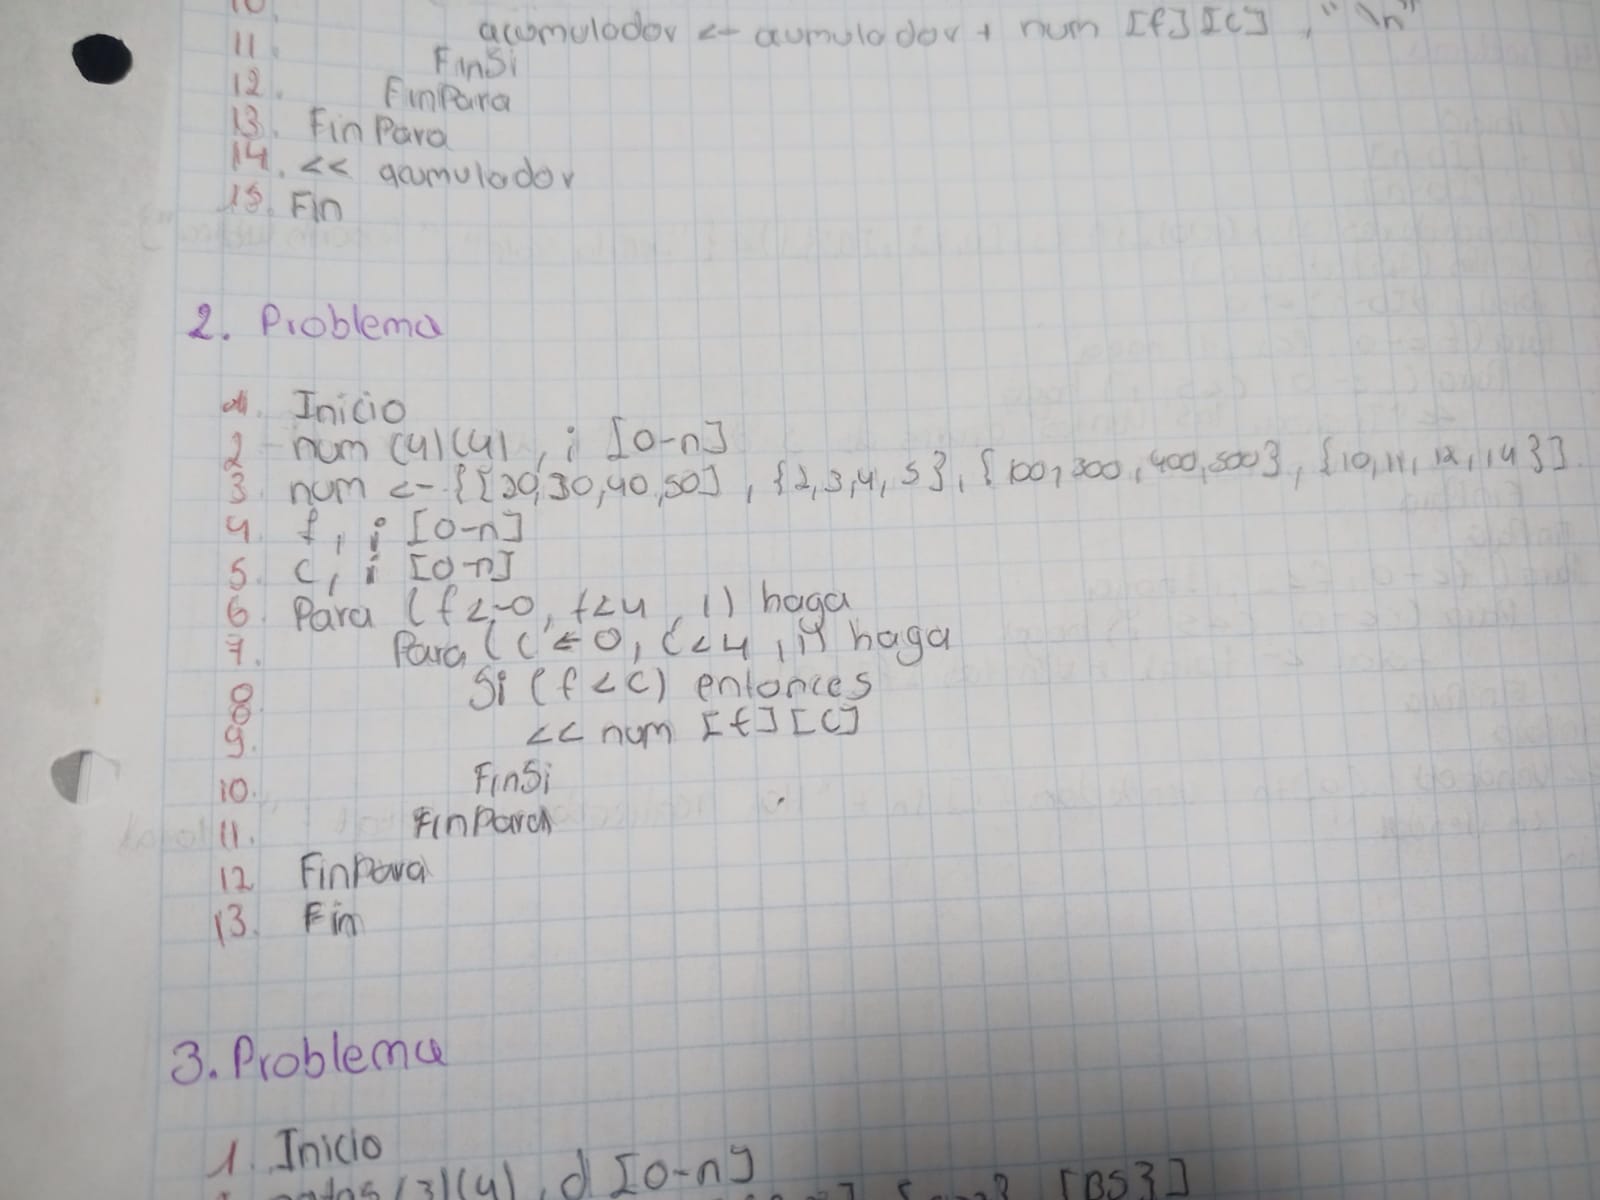 10.
acumulador <- aumulador + num [f][c], "\n"
11. FinSi
12. FinPara
13. FinPara
14. << acumulador
15. Fin
2. Problema
1. Inicio
2 num (4)(4), i [0-n]
3. num <- {{20,30,40,50}, {2,3,4,5}, {100,300,400,500}, {10,11,12,14}}
4 f, i [0-n]
5. c, i [0-n]
6. Para (f<-0, f<4, 1) haga
7. Para (c<-0, c<4, 1) haga
8 Si (f<c) entonces
9. << num [f][c]
10. FinSi
11. FinPara
12 FinPara
13. Fin
3. Problema
1. Inicio
(3)(4), d [0-n]